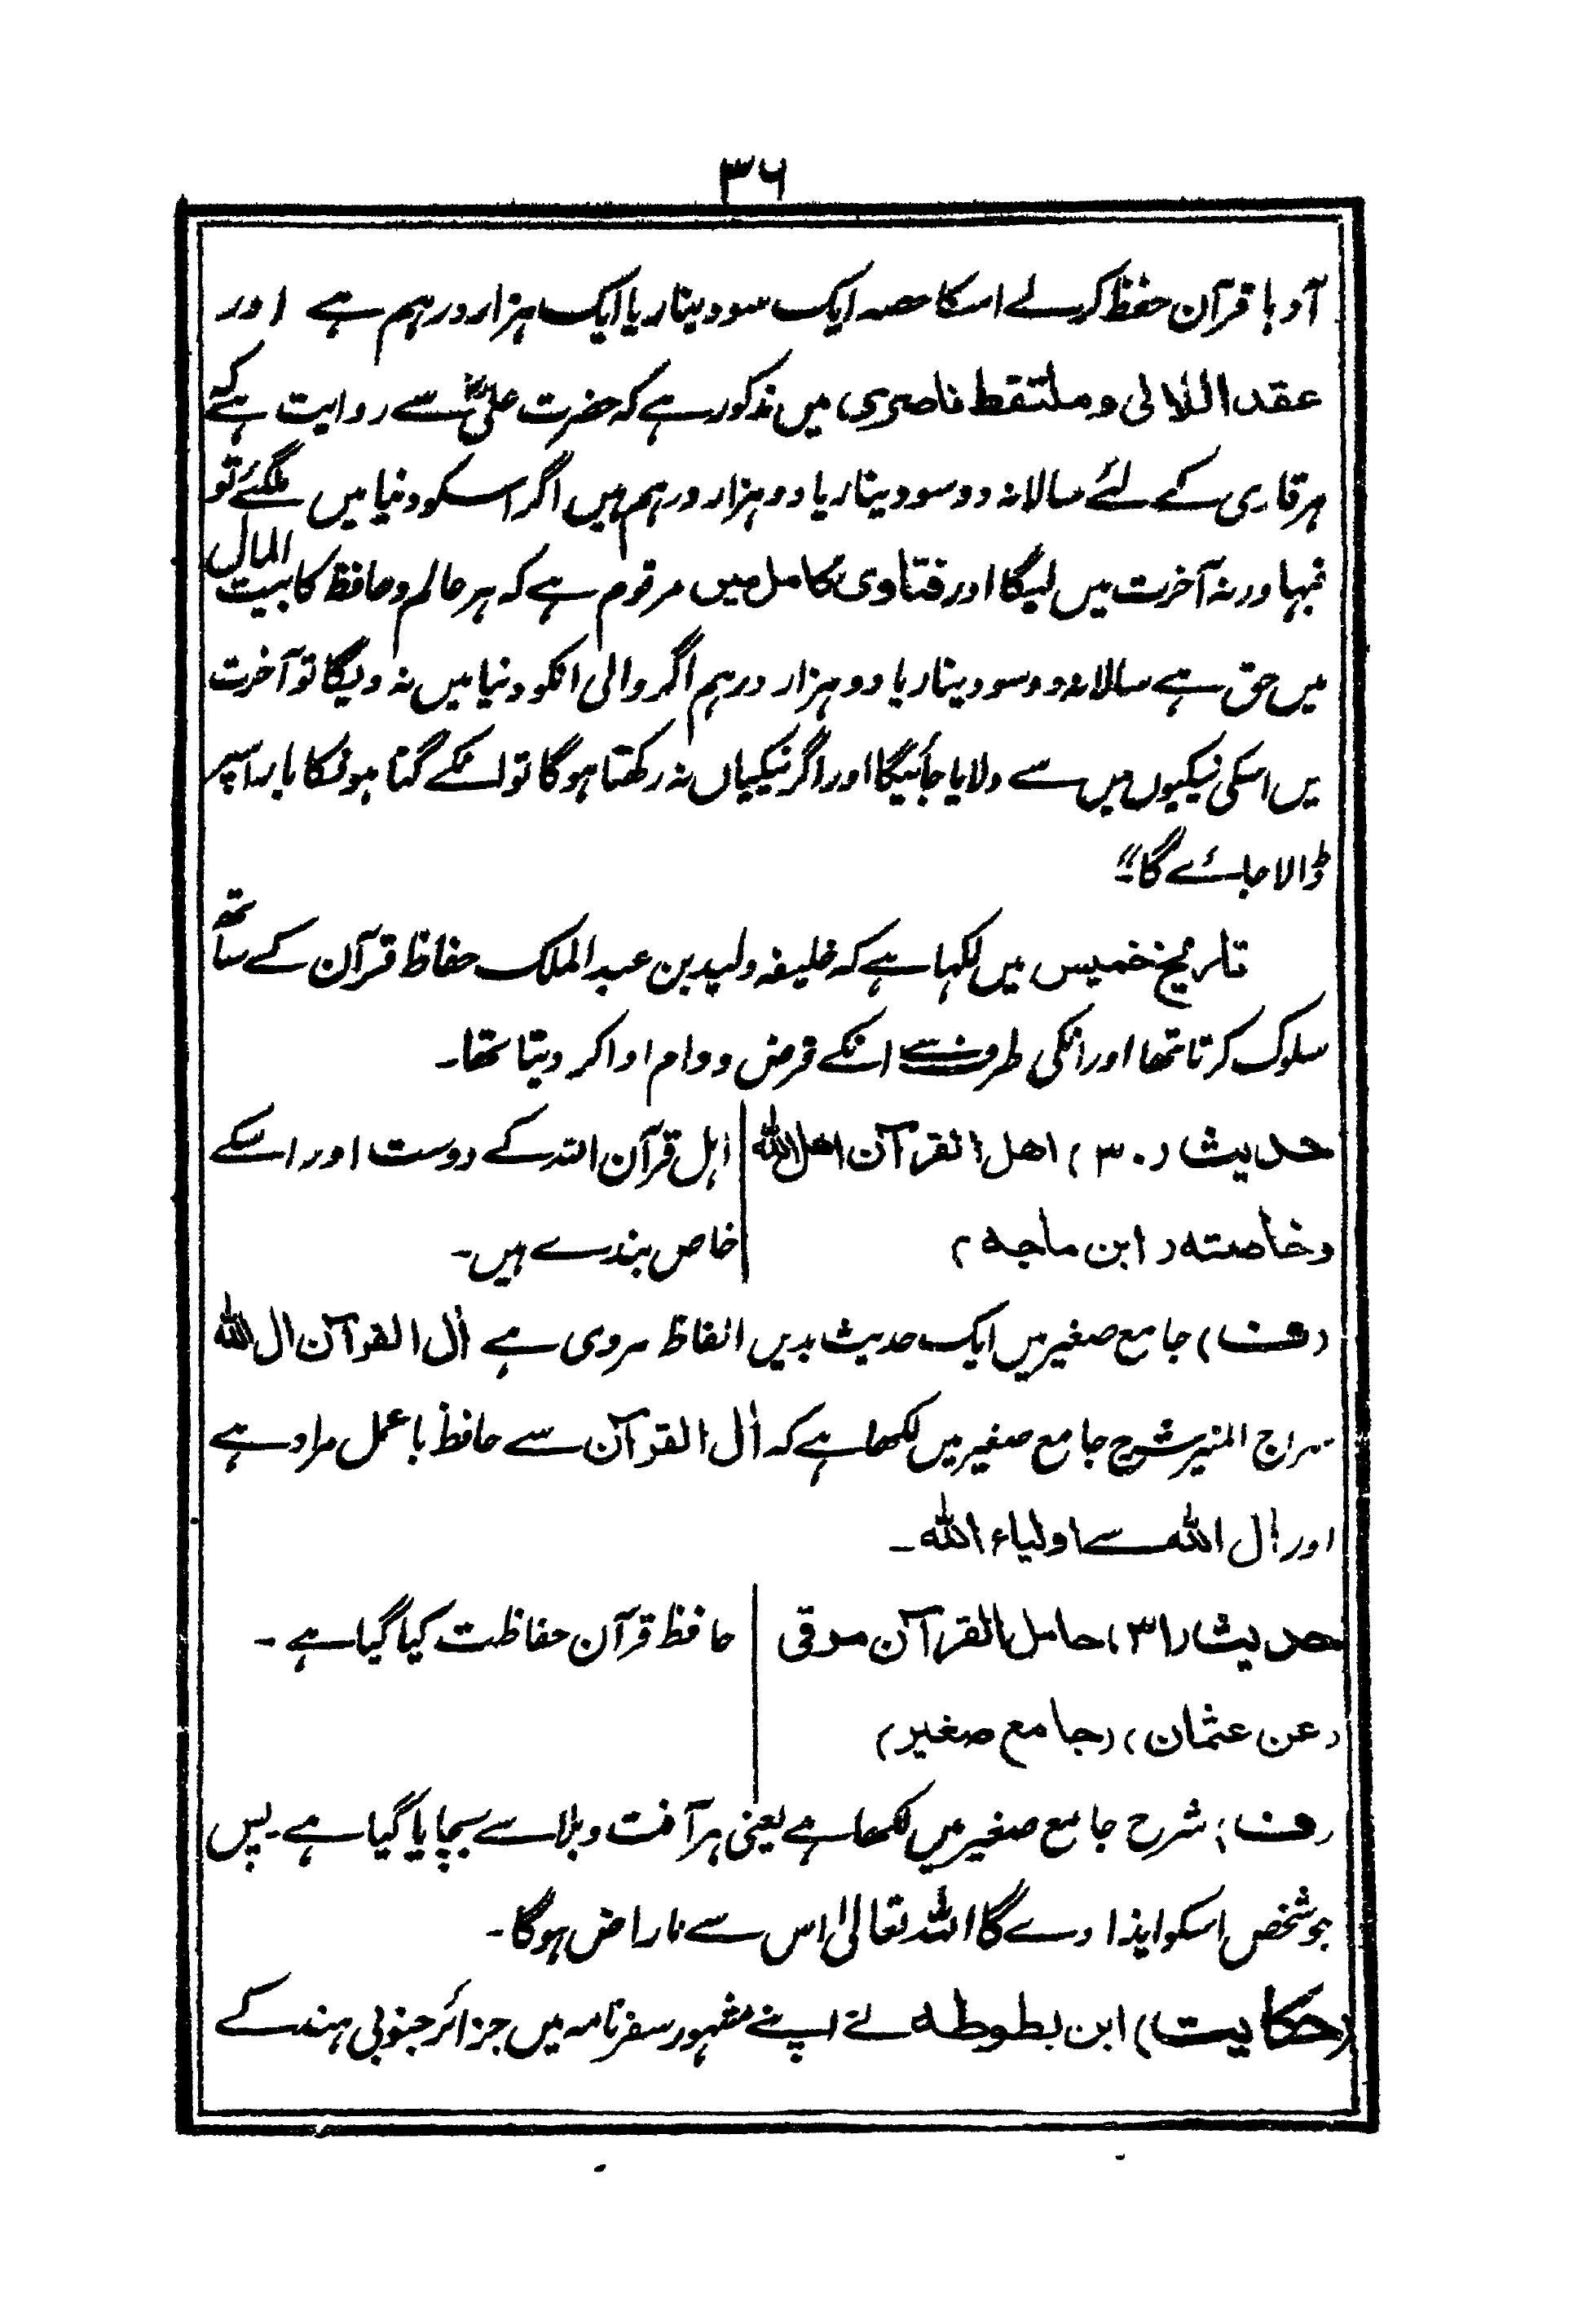 ۳۶
آدہا قرآن حفظ کرلے اسکا حصہ ایک سو دینار یا ایک ہزار درہم ہے اور
عقد اللآلی و ملتقط ناصری میں مذکور ہے کہ حضرت علیؓ سے روایت ہے کہ
ہر قاری کے لئے سالانہ دو سو دینار یا دو ہزار درہم ہیں اگر اسکو دنیا میں ملگئے تو
فبہا ورنہ آخرت میں لیگا اور فتاوی کامل میں مرقوم ہے کہ ہر عالم و حافظ کا بیت المال
میں حق ہے سالانہ دو سو دینار یا دو ہزار درہم اگر والی انکو دنیا میں نہ دیگا تو آخرت
میں اسکی نیکیوں میں سے دلایا جائیگا اور اگر نیکیاں نہ رکھتا ہوگا تو انکے گناہونکا بار اسپر
ڈالا جائے گا"۔
تاریخ خمیس میں لکہا ہے کہ خلیفہ ولید بن عبد الملک حفاظ قرآن کے ساتھ
سلوک کرتا تھا اور انکی طرف سے انکے قرض و وام ادا کر دیتا تھا۔
حدیث (۳۰) اهل القرآن اهل الله | اہل قرآن اللہ کے دوست اور اسکے
وخاصته (ابن ماجه) | خاص بندے ہیں۔
(ف) جامع صغیر میں ایک حدیث بدیں الفاظ مروی ہے اٰل القرآن اٰل الله
سراج المنیر شرح جامع صغیر میں لکھا ہے کہ اٰل القرآن سے حافظ باعمل مراد ہے
اور اٰل الله سے اولیاء الله۔
حدیث (۳۱) حامل القرآن موقی | حافظ قرآن حفاظت کیا گیا ہے۔
(عن عثمان) (جامع صغیر)
(ف) شرح جامع صغیر میں لکھا ہے یعنی ہر آفت و بلا سے بچایا گیا ہے۔ پس
جو شخص اسکو ایذا دے گا اللہ تعالیٰ اس سے ناراض ہوگا۔
(حکایت) ابن بطوطہ نے اپنے مشہور سفرنامہ میں جزائر جنوبی ہند کے